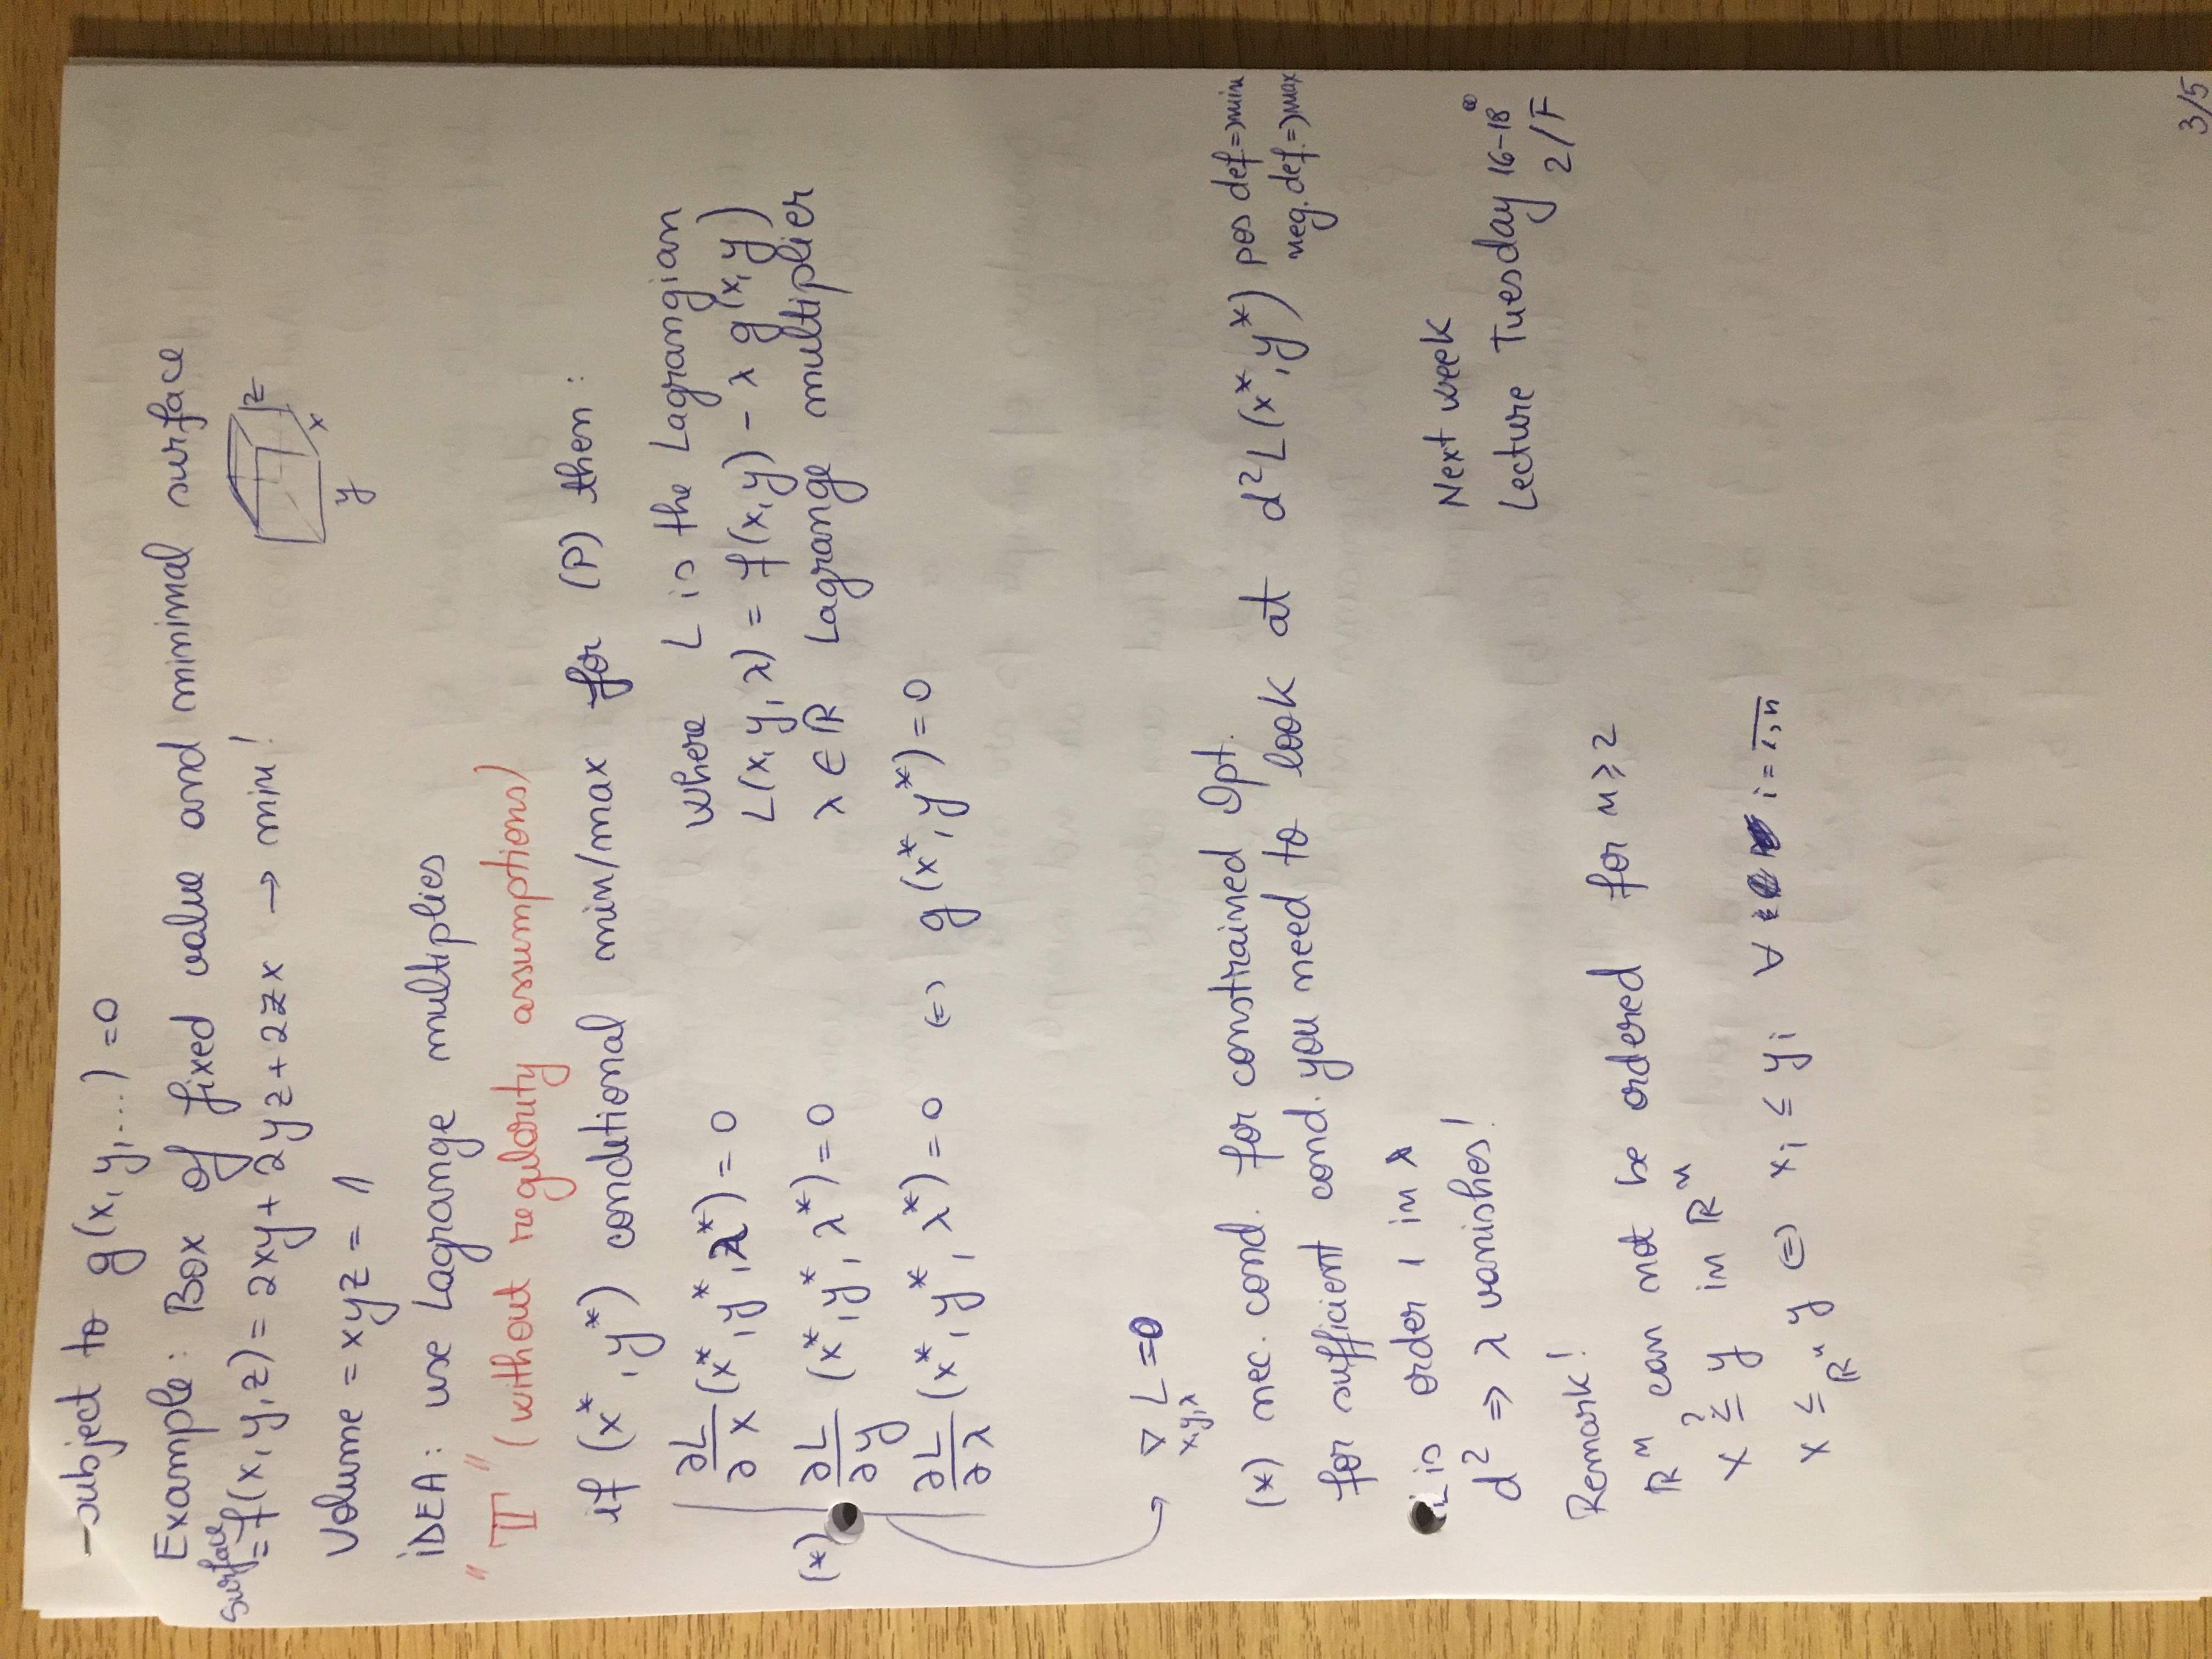 -subject to g(x, y, ...) = 0
Example: Box of fixed value and minimal surface
Surface
= f(x, y, z) = 2xy + 2yz + 2zx → min!
z
x
y
Volume = xyz = 1
iDEA: use Lagrange multiplies
"T" (without regularity assumptions)
if (x*, y*) conditional min/max for (P) then:
∂L/∂x (x*, y*, λ*) = 0
where L is the Lagrangian
L(x, y, λ) = f(x, y) - λ g(x, y)
(*) ∂L/∂y (x*, y*, λ*) = 0
λ ∈ ℝ Lagrange multiplier
∂L/∂λ (x*, y*, λ*) = 0 ⇔ g(x*, y*) = 0
∇ L = 0
x,y,λ
(*) nec. cond. for constrained Opt.
for sufficient cond. you need to look at d²L(x*, y*) pos def => min
neg. def. => max
L is order 1 in λ
d² ⇒ λ vanishes!
Next week
Lecture Tuesday 16-18
2/F
Remark!
ℝⁿ can not be ordered for n ≥ 2
?
x ≤ y in ℝⁿ
x ≤ℝⁿ y ⇔ xᵢ ≤ yᵢ ∀ i = 1,n
3/5